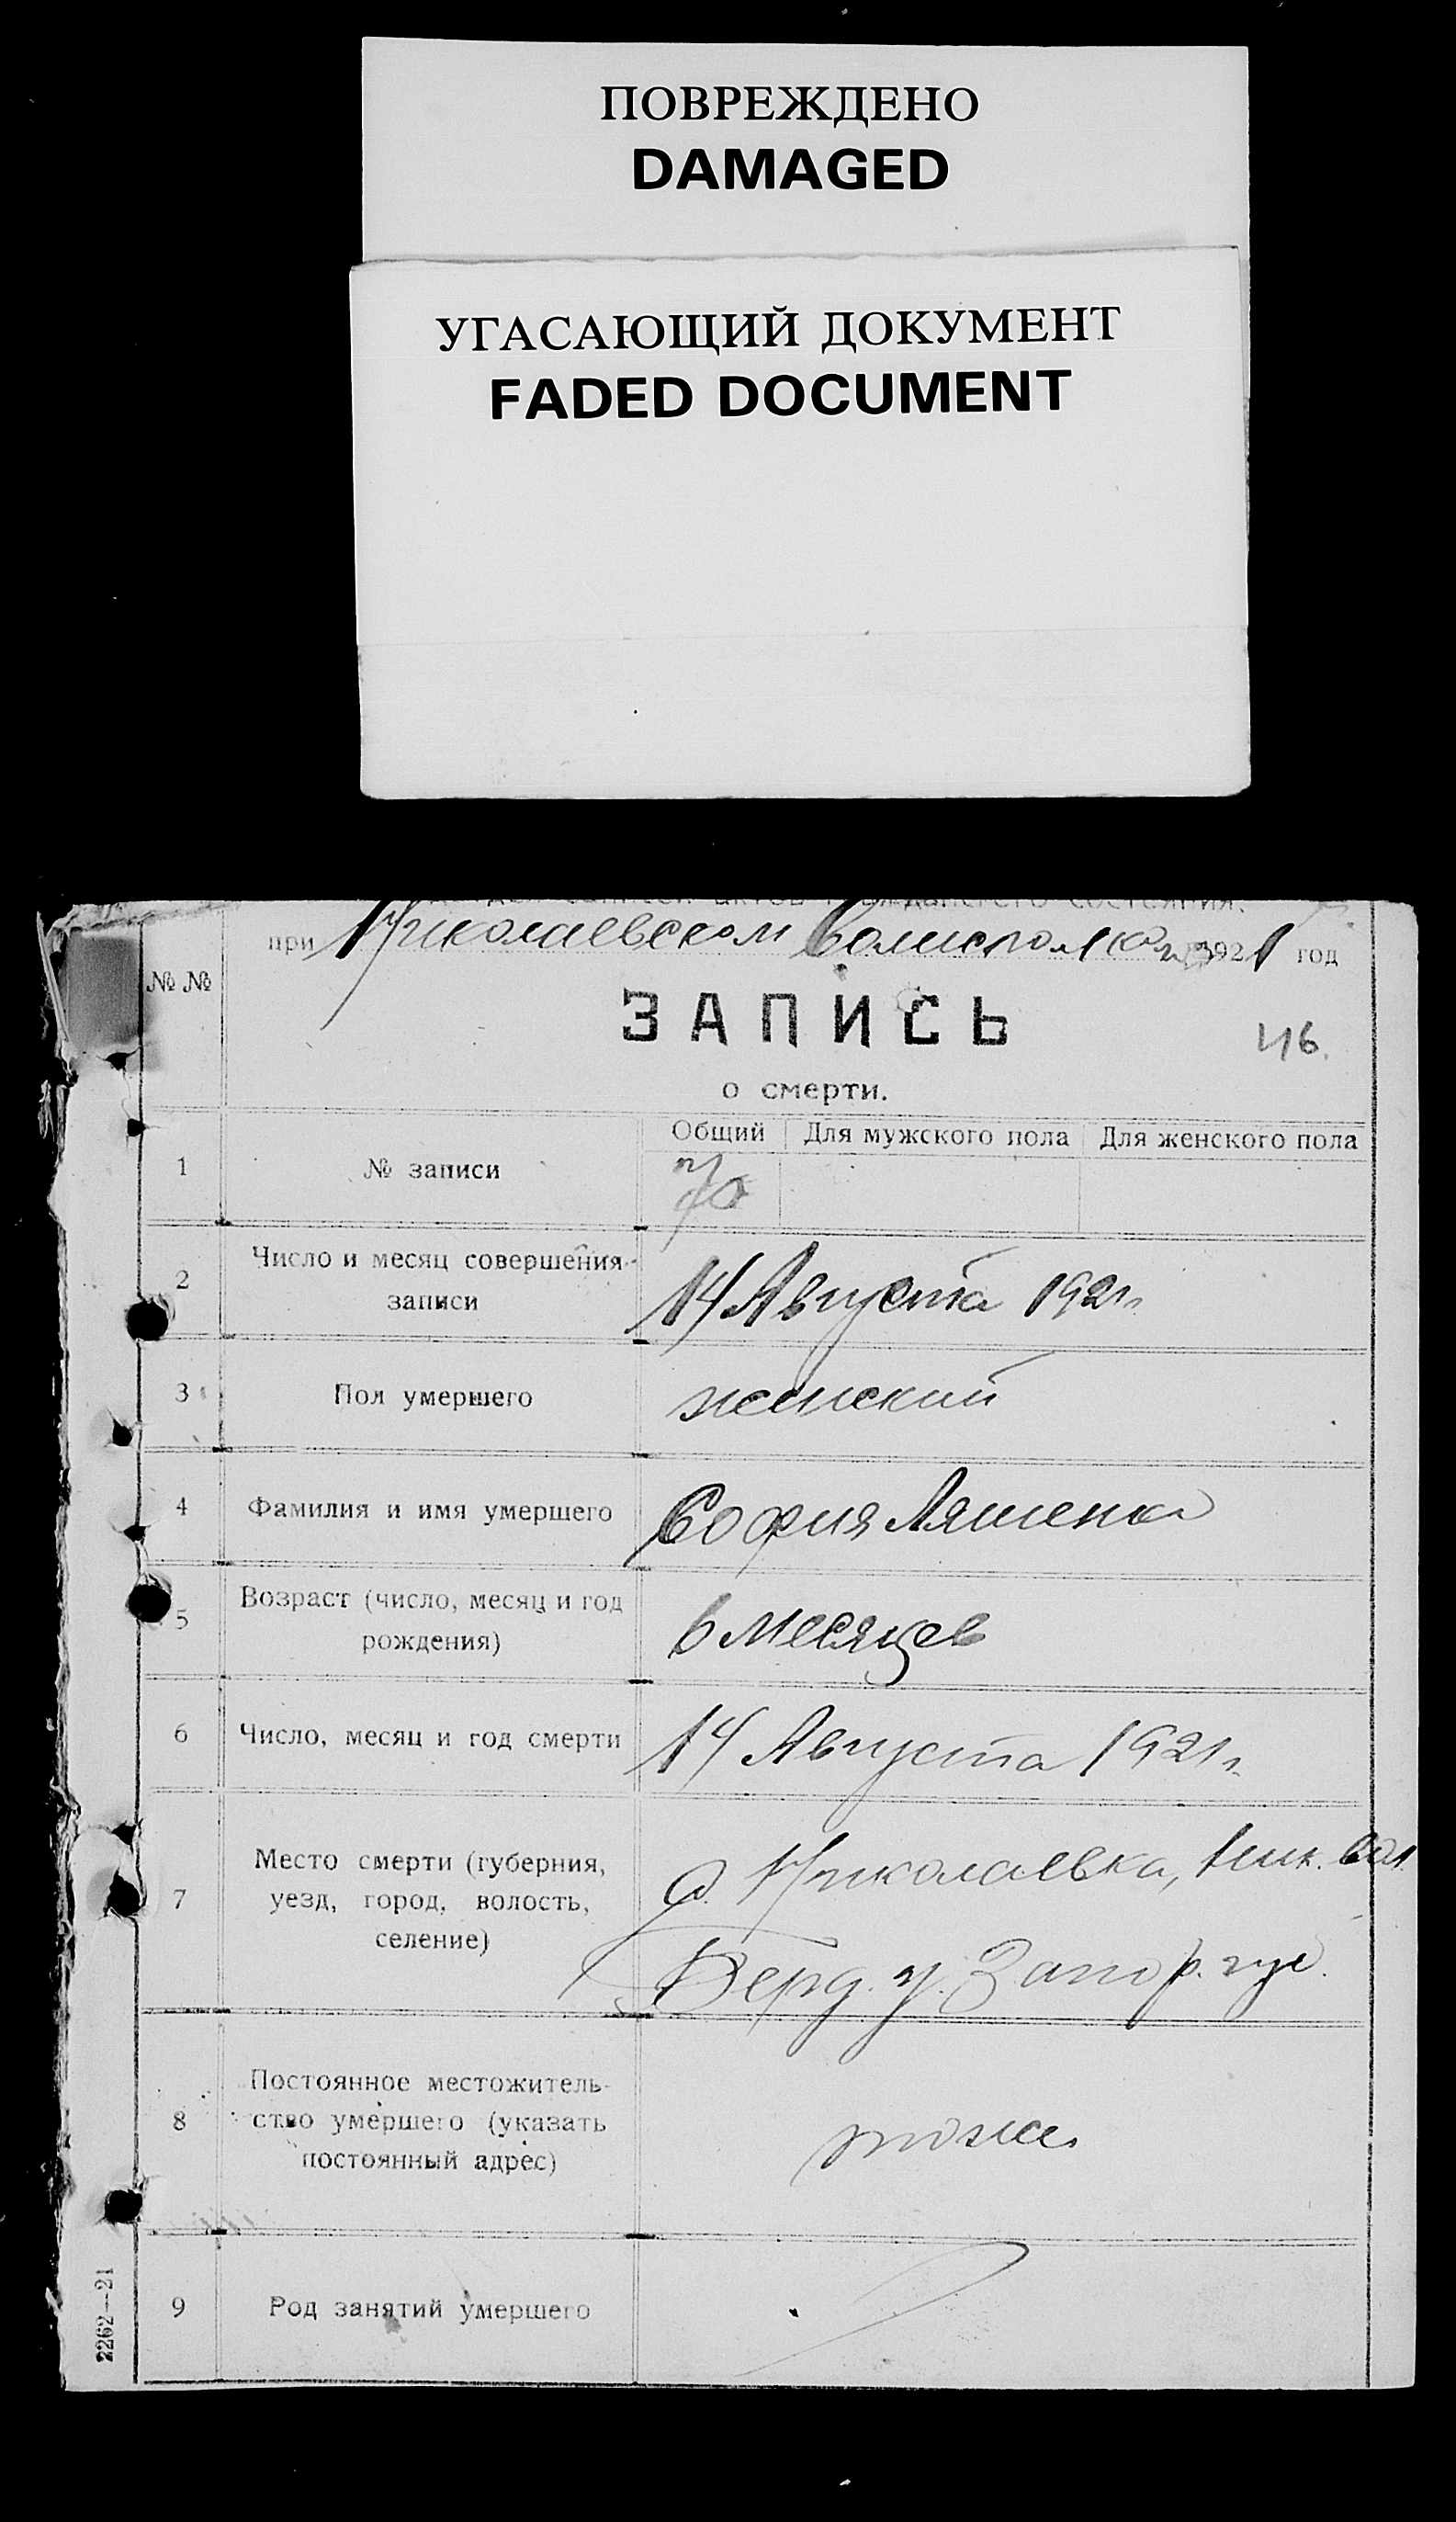 ПОВРЕЖДЕНО
DAMAGED
УГАСАЮЩИЙ ДОКУМЕНТ
FADED DOCUMENT
записи актов гражданского состояния.
при Николаевском Волисполкоме 1921 год
№ №
ЗАПИСЬ
46.
о смерти.
Общий Для мужского пола Для женского пола
1 № записи 70
2 Число и месяц совершения записи
14 Августа 1921 г.
3 Пол умершего женский
4 Фамилия и имя умершего София Ляшенко
5 Возраст (число, месяц и год
рождения)
6 месяцев
6 Число, месяц и год смерти 14 Августа 1921 г.
7 Место смерти (губерния,
уезд, город, волость,
селение)
с. Николаевка, Ник. вол.
Берд. у. Запор. губ.
8 Постоянное местожитель-
ство умершего (указать
постоянный адрес)
тоже
9 Род занятий умершего
2262—21